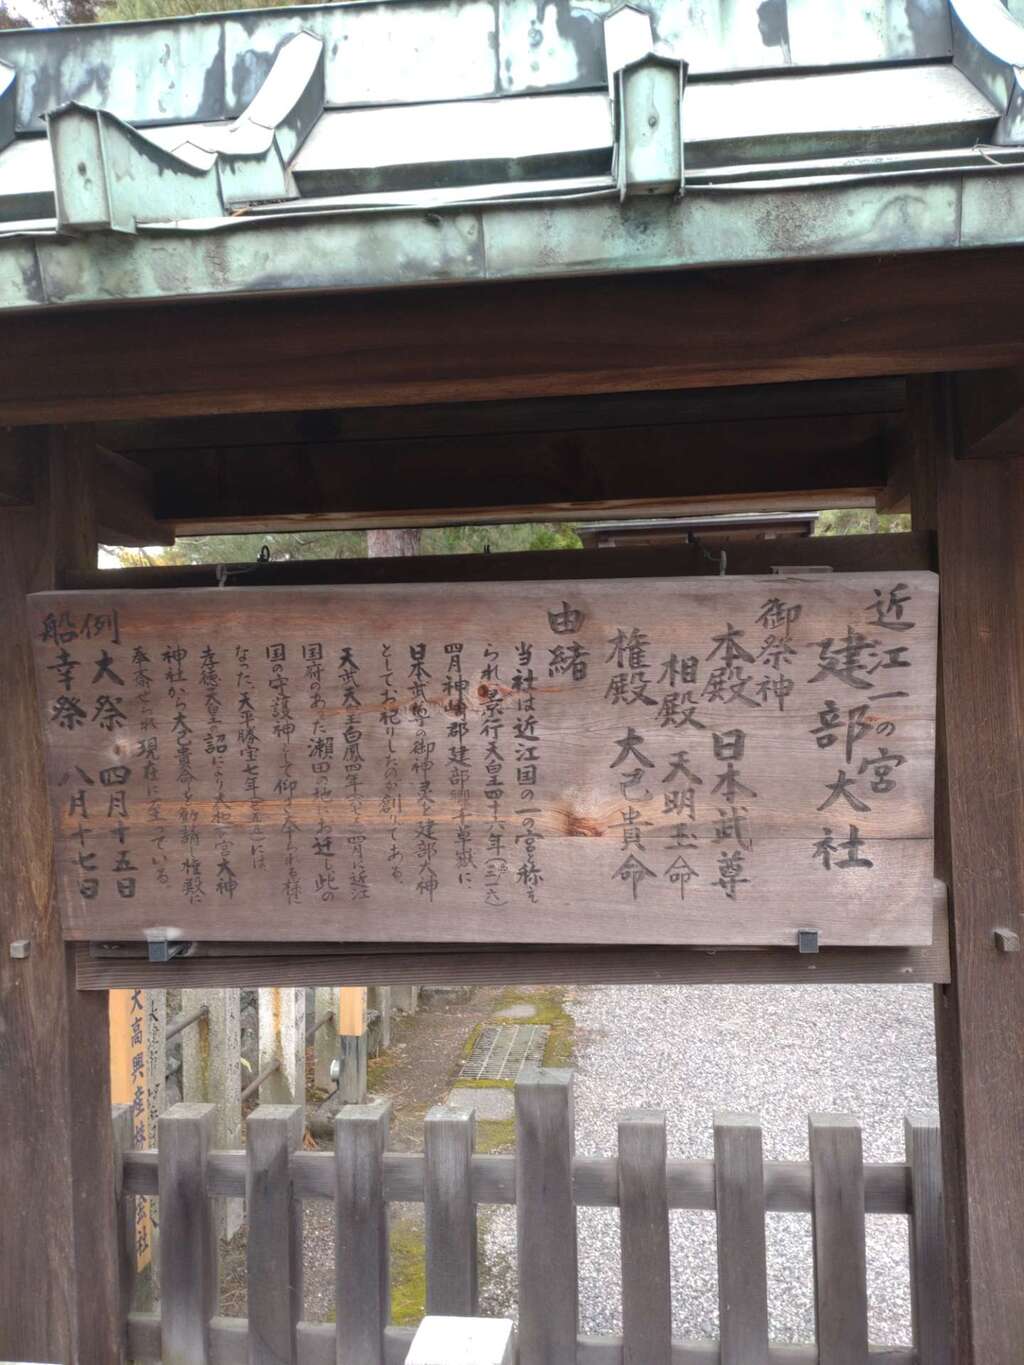 近江一の宮
建部大社
御祭神
本殿 日本武尊
相殿 天明玉命
権殿 大己貴命
由緒
当社は近江国の一の宮と称え
られ、景行天皇四十六年(三一六)
四月神崎郡建部郷千草嶽に
日本武尊の御神霊を建部大神
としてお祀りしたのが創りである。
天武天皇白鳳四年 四月に近江
国府のあった瀬田の地にお迁し此の
国の守護神として仰
なった。天平勝宝七年(七五五)には
孝徳天皇の詔により大和一宮大神
神社から大己貴命を勧請し権殿に
奉斎せられ現在に至っている。
例大祭 四月十五日
船幸祭 八月十七日
大高興産株 会社